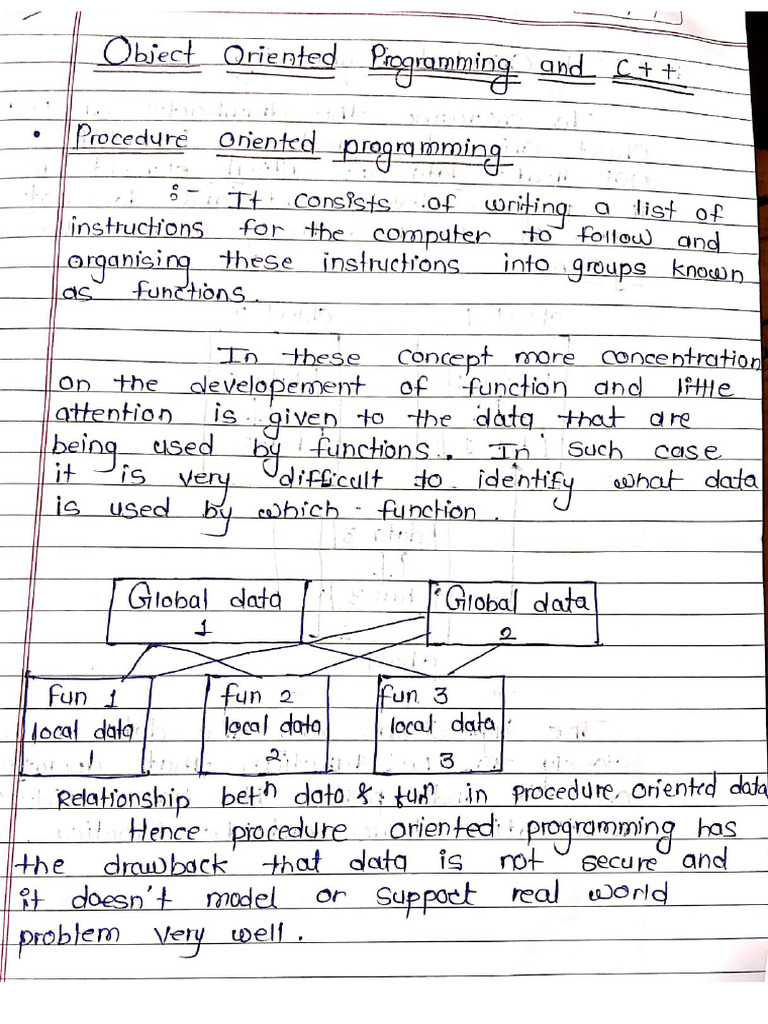 Object Oriented Programming and C++
• Procedure oriented programming
:- It consists of writing a list of
instructions for the computer to follow and
organising these instructions into groups known
as functions.
In these concept more concentration
on the developement of function and little
attention is given to the data that are
being used by functions. In such case
it is very difficult to identify what data
is used by which function.
Global data
1
Global data
2
fun 1
local data
1
fun 2
local data
2
fun 3
local data
3
Relationship betⁿ data & funⁿ in procedure oriented data
Hence procedure oriented programming has
the drawback that data is not secure and
it doesn't model or support real world
problem very well.